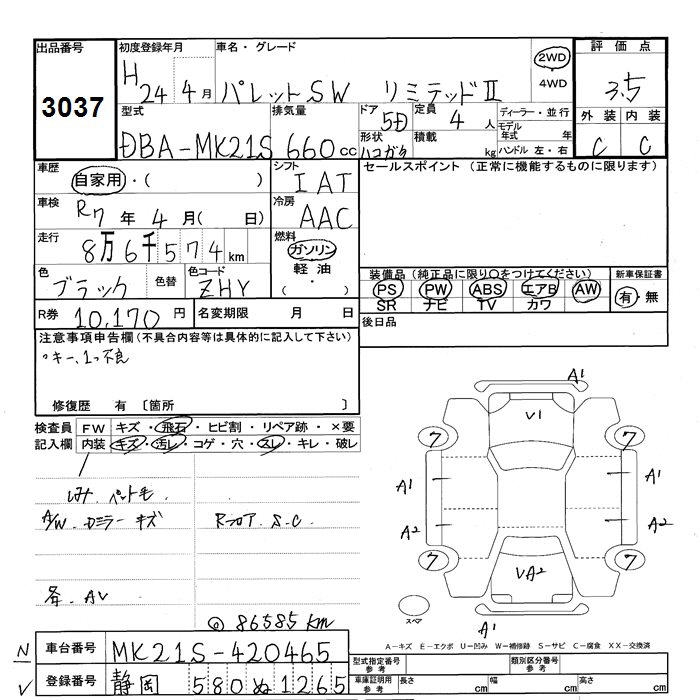 出品番号
3037
初度登録年月
H24 4月
車名・グレード
パレットSW リミテッドⅡ
2WD
4WD
評価点
3.5
外装 内装
C C
型式
DBA-MK21S
排気量
660cc
ドア
5D
形状
ハコガタ
定員
4人
積載
kg
ディーラー・並行
モデル年式 年
ハンドル 左・右
車歴
自家用・( )
シフト
IAT
セールスポイント (正常に機能するものに限ります)
車検
R7年4月( 日)
冷房
AAC
走行
8万6千574km
燃料
ガソリン
軽油
( ・ )
色
ブラック
色替
色コード
ZHY
装備品(純正品に限り○をつけてください)
PS PW ABS エアB AW
SR ナビ TV カワ
新車保証書
有・無
R券
10,170円
名変期限 月 日
後日品
注意事項申告欄(不具合内容等は具体的に記入して下さい)
・キー、1つ不良
修復歴 有 〔箇所 〕
検査員記入欄
FW キズ・飛石・ヒビ割・リペア跡・×要
内装 キズ・汚レ・コゲ・穴・スレ・キレ・破レ
シミ ペット毛
A/W. ミラー キズ
Rフロア S.C
各. AV
◎ 86585 km
A1
V1
7 7
A1 A1
A2 A2
7 7
VA2
スペア
A1
A-キズ E-エクボ U-凹み W-補修跡 S-サビ C-腐食 XX-交換済
N
車台番号
MK21S-420465
V
登録番号
静岡 580 ぬ 1265
型式指定番号
参考
類別区分番号
参考
車庫証明用
参考
長さ cm
幅 cm
高さ cm